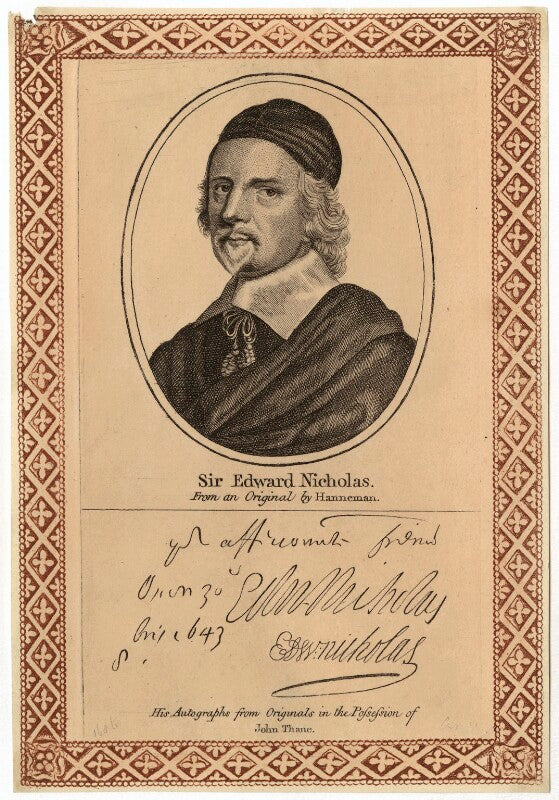 Sir Edward Nicholas.
From an Original by Hanneman.
yr affectionate friend
Oxon 30
Edw. Nicholas
1643
8.
Edw: nicholas
His Autographs from Originals in the Possession of
John Thane.